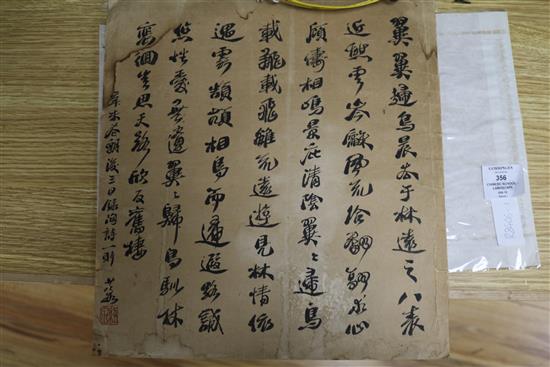 翼翼歸鳥晨去于林遠之八表
近憩雲岑龢風弗洽翻翮求心
顧儔相鳴景庇清陰翼〻歸鳥
載翔載飛雖不遠遊見林情依
遇雲頡頏相鳴而歸遐路誠
悠性愛無遺翼〻歸鳥馴林
徊豈思天路欣反舊棲
後三日錄陶詩一則
356
CHINESE SCHOOL
LANDSCAPE